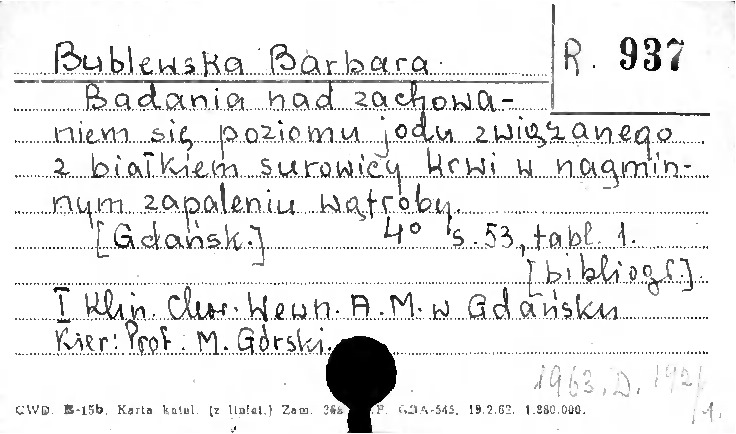 Bublewska Barbara. R. 937
Badania nad zachowa-
niem się poziomu jodu związanego
z białkiem surowicy krwi w nagmin-
nym zapaleniu wątroby.
[Gdańsk.] 4° s. 53, tabl. 1.
[bibliogr.].
I Klin. Chor. Wewn. A. M. w Gdańsku
Kier: Prof. M. Górski.
1963. D. 192/1.
CWD. B-15b. Karta katal. (z liniat.) Zam. GDA-545. 19.2.62. 1.280.000.